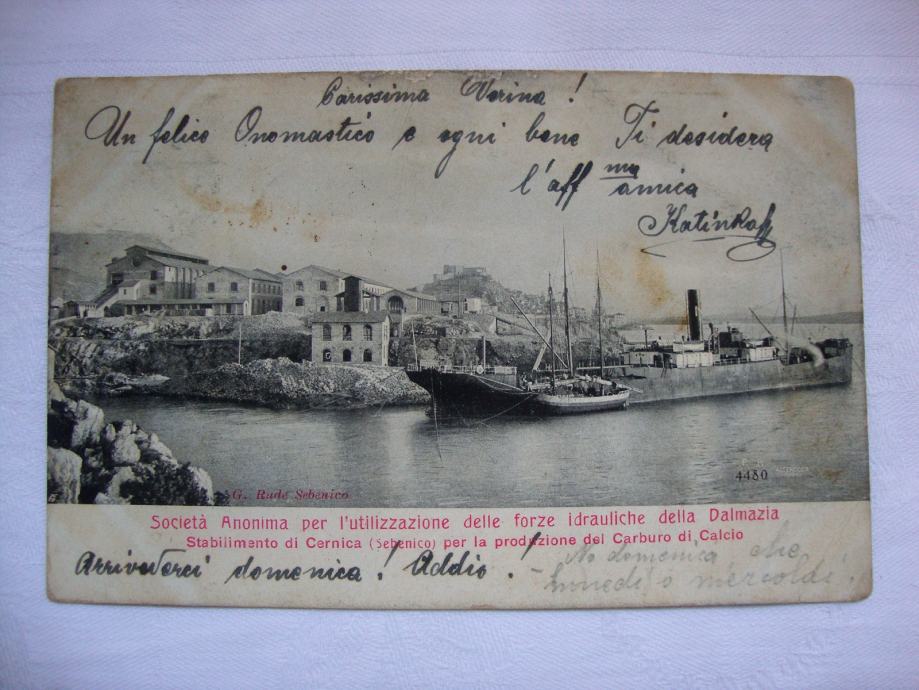 Carissima Verina!
Un felice Onomastico e ogni bene Ti desidera
l'aff ma amica
Katinka
4480
G. Rude Sebenico
Società Anonima per l'utilizzazione delle forze idrauliche della Dalmazia
Stabilimento di Cernica (Sebenico) per la produzione del Carburo di Calcio
Arrivederci domenica! Addio!
No domenica che
lunedì o mercoldì!